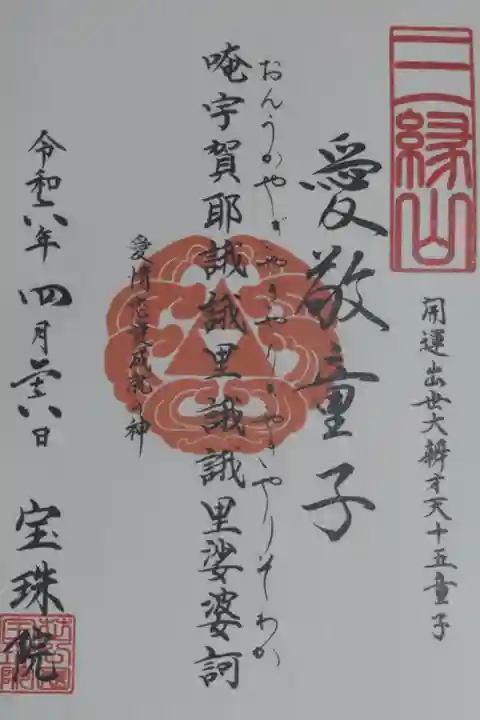 三縁山
開運出世大辨才天十五童子
愛敬童子
おんうかやぎゃぎゃりぎゃぎゃりそわか
唵宇賀耶誐誐里誐誐里娑婆訶
愛情恋愛成就の神
令和六年四月廿八日
宝珠院